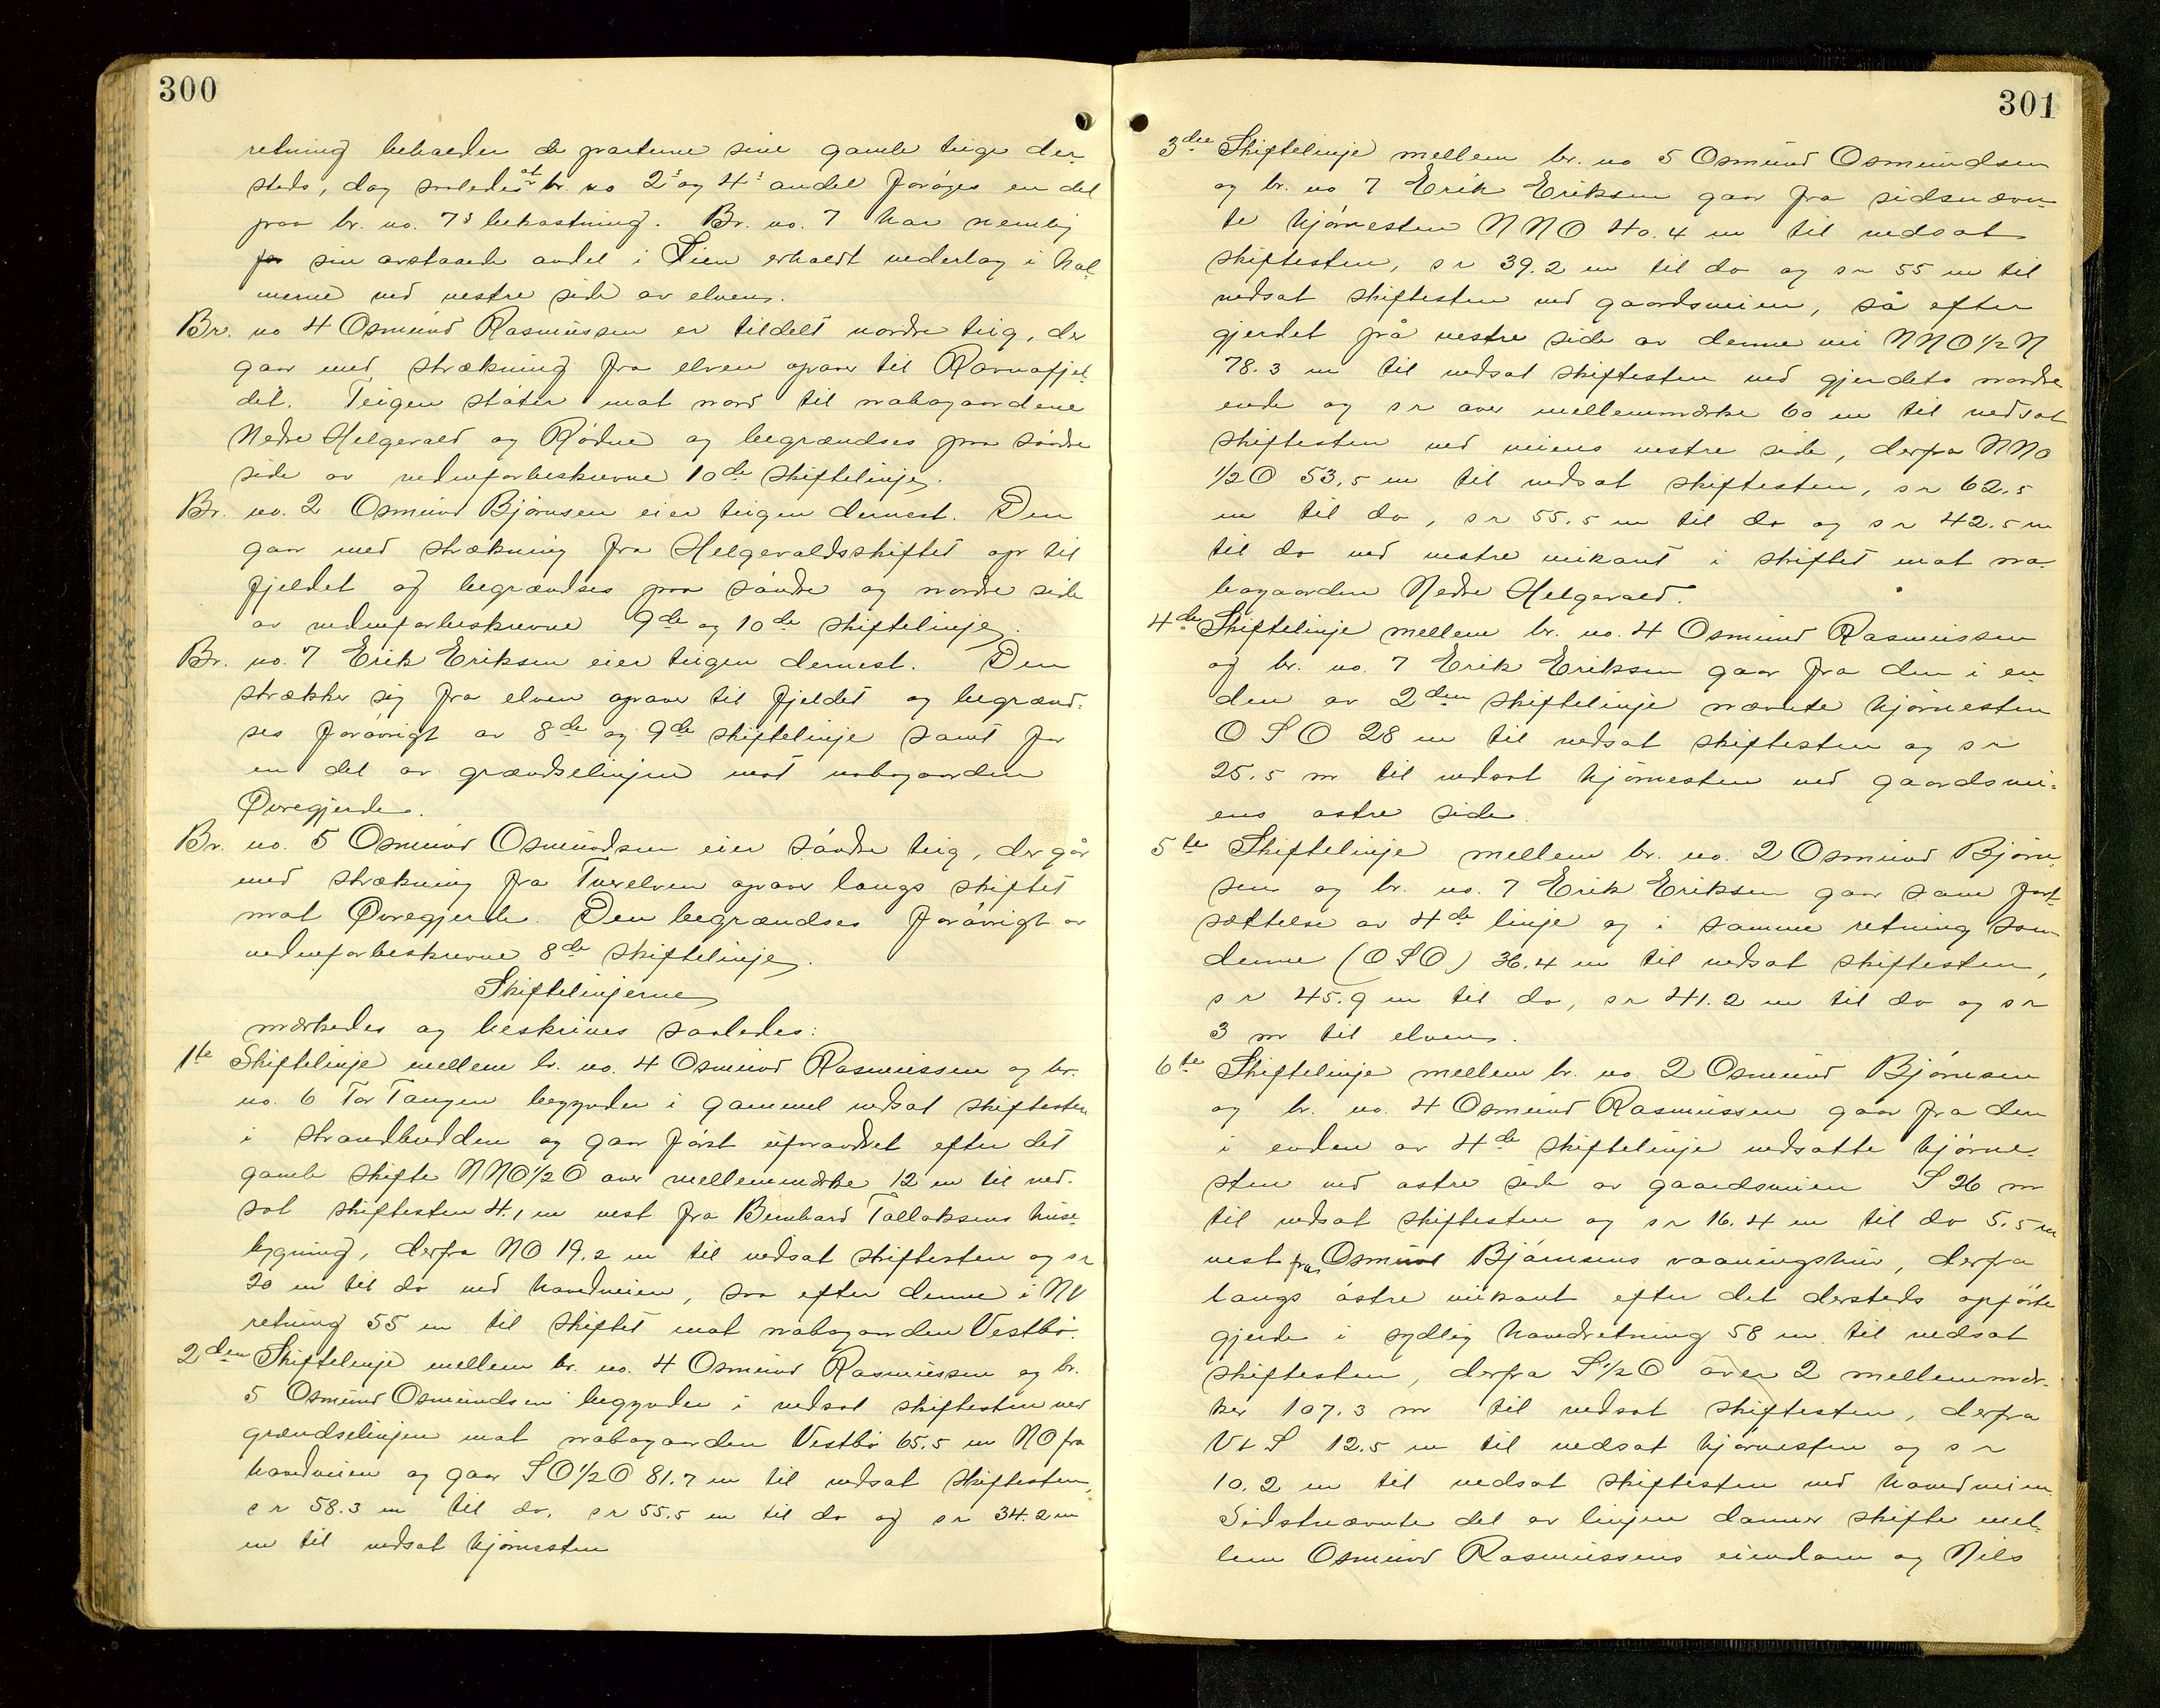 300
retning beholder de parterne sine gamle teige der-
steds, dog saaledes at br. no 2s og 4s andel forøges en del
paa br. no. 7s bekostning. Br. no. 7 har nemlig
for sin avstaaede andel i Lien erholdt vederlag i hol-
merne ved vestre side av elven.
Br. no 4 Osmund Rasmussen er tildelt nordre teig, der
gaar med strækning fra elven opover til Ravnafjel-
det. Teigen støter mot nord til nabogaardene
Nedre Helgevold og Rødne og begrændses paa søndre
side av nedenforbeskrevne 10de skiftelinje.
Br. no. 2 Osmund Bjørnsen eier teigen dernest. Den
gaar med strækning fra Helgevoldsskiftet op til
fjeldet og begrændses paa søndre og nordre side
av nedenforbeskrevne 9de og 10de skiftelinje.
Br. no. 7 Erik Eriksen eier teigen dernest. Den
strækker sig fra elven opover til fjeldet og begrænd-
ses forøvrigt av 8de og 9de skiftelinje samt for
en del av grændselinjen mot nabogaarden
Øvregjerde.
Br. no. 5 Osmund Osmundsen eier søndre teig, der går
med strækning fra Tverelven opover langs skiftet
mot Øvregjerde. Den begrændses forøvrigt av
nedenforbeskrevne 8de skiftelinje.
Skiftelinjerne
mærkedes og beskrives saaledes:
1te Skiftelinje mellem br. no. 4 Osmund Rasmussen og br.
no. 6 Tor Tangen begynder i gammel nedsat skiftesten
i strandbredden og gaar først uforandret efter det
gamle skifte NNO½O over mellemmærke 12 m til ned-
sat skiftesten 4.1 m vest fra Bernhard Tollaksens huse-
bygning, derfra NO 19.2 m til nedsat skiftesten og s r
20 m til do ved hovedveien, saa efter denne i NV
retning 55 m til skiftet mot nabogaarden Vestbø.
2den Skiftelinje mellem br. no. 4 Osmund Rasmussen og br.
5 Osmund Osmundsen begynder i nedsat skiftesten ved
grændselinjen mot nabogaarden Vestbø 65.5 m NO fra
hovedveien og gaar SO½O 81.7 m til nedsat skiftesten,
s r 58.3 m til do, s r 55.5 m til do og s r 34.2 m
m til nedsat hjørnesten
301
3die Skiftelinje mellem br. no 5 Osmund Osmundsen
og br. no 7 Erik Eriksen gaar fra sidsnævn-
te hjørnesten NNO 40.4 m til nedsat
skiftesten, s r 39.2 m til do og s r 55 m til
nedsat skiftesten ved gaardsveien, så efter
gjerdet på vestre side av denne vei NNO½N
78.3 m til nedsat skiftesten ved gjerdets nordre
ende og s r over mellemmærke 60 m til nedsat
skiftesten ved veiens vestre side, derfra NNO
½O 53.5 m til nedsat skiftesten, s r 62.5
m til do, s r 55.5 m til do og s r 42.5 m
til do ved vestre veikant i skiftet mot na-
bogaarden Nedre Helgevold.
4de Skiftelinje mellem br. no. 4 Osmund Rasmussen
og br. no. 7 Erik Eriksen gaar fra den i en-
den av 2den skiftelinje nævnte hjørnesten
OSO 28 m til nedsat skiftesten og s r
25.5 m til nedsat hjørnesten ved gaardsvei-
ens østre side.
5te Skiftelinje mellem br. no. 2 Osmund Bjørn-
sen og br. no. 7 Erik Eriksen gaar som fort-
sættelse av 4de linje og i samme retning som
denne (OSO) 36.4 m til nedsat skiftesten,
s r 45.9 m til do, s r 41.2 m til do og s r
3 m til elven.
6te Skiftelinje mellem br. no. 2 Osmund Bjørnsen
og br. no. 4 Osmund Rasmussen gaar fra den
i enden av 4de skiftelinje nedsatte hjørne-
sten ved østre side av gaardsveien S 26 m
til nedsat skiftesten og s r 16.4 m til do 5.5 m
vest fra Osmund Bjørnsens vaaningshus, derfra
langs østre veikant efter det dersteds opførte
gjerde i sydlig hovedretning 58 m til nedsat
skiftesten, derfra S½O over 2 mellemmær-
ker 107.3 m til nedsat skiftesten, derfra
VtS 12.5 m til nedsat hjørnesten og s r
10.2 m til nedsat skiftesten ved hovedveien.
Sidstnævnte del av linjen danner skifte mel-
lem Osmund Rasmussens eiendom og Nils